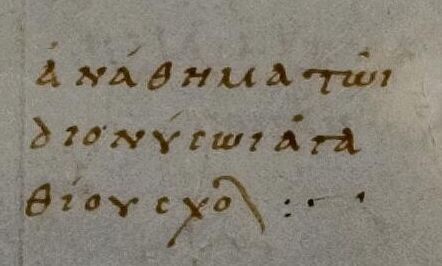 ἀνάθημα τῶι
διονύσωι ἀγα
θίου σχολ :··